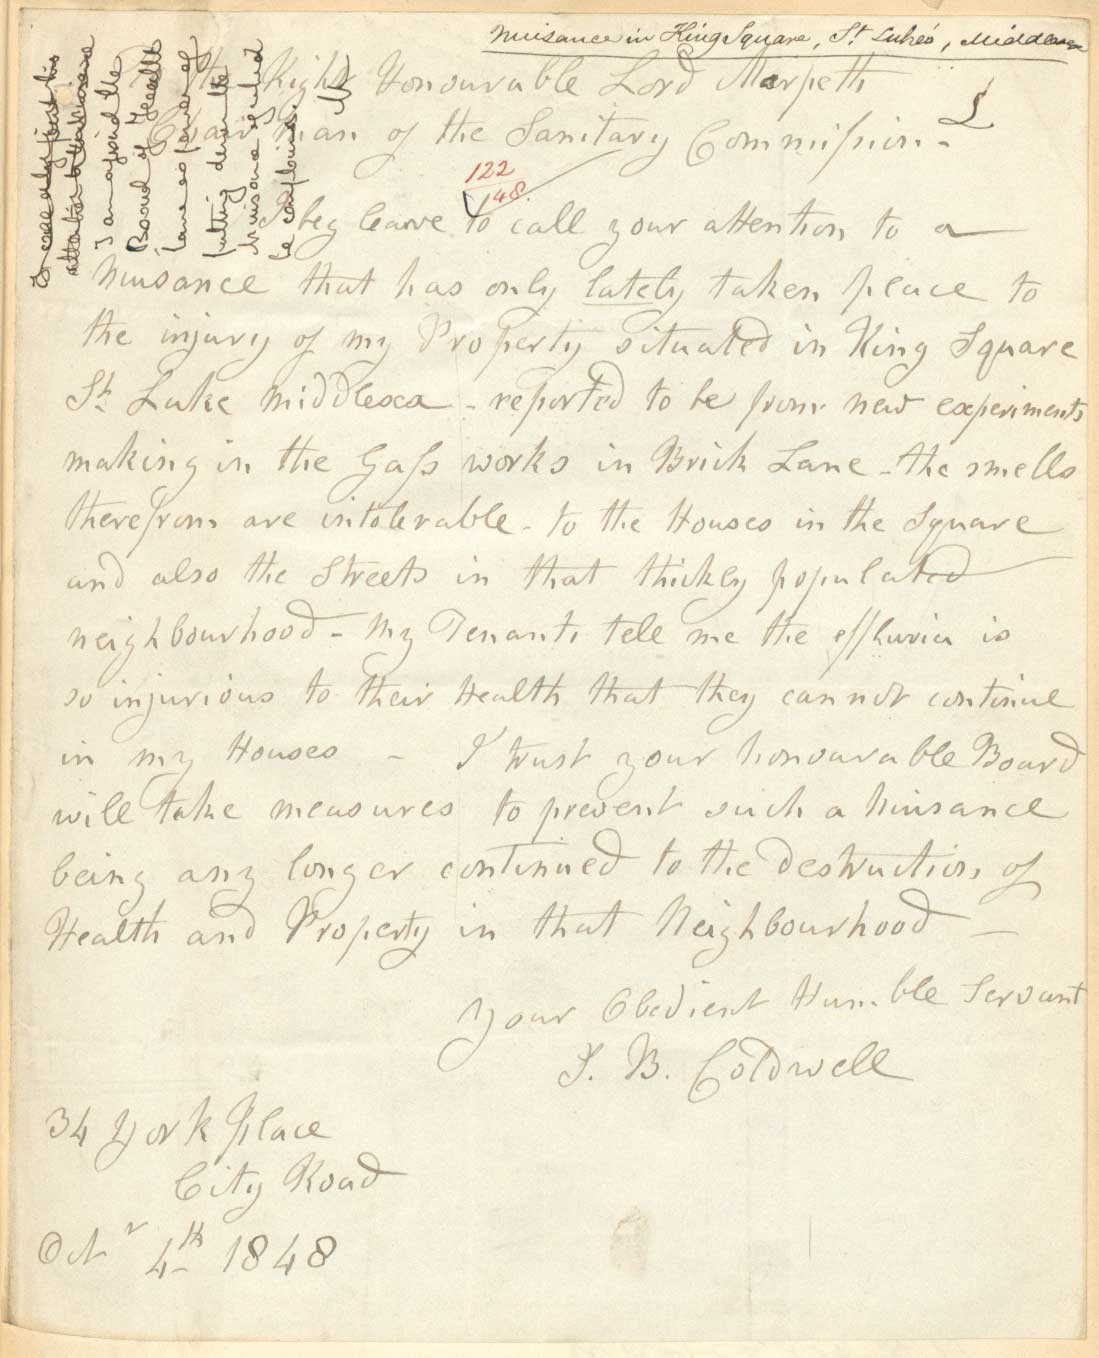 Nuisance in King Square, St. Luke's, Middlesex
To the Right Honourable Lord Morpeth
Chairman of the Sanitary Commission -
L
122
48
I beg leave to call your attention to a
Nuisance that has only lately taken place to
the injury of my Property situated in King Square
St. Luke Middlesex - reported to be from new experiments
making in the Gass works in Brick Lane - the smells
therefrom are intolerable - to the Houses in the Square
and also the Streets in that thickly populated
neighbourhood - My Tenants tell me the effluvia is
so injurious to their Health that they cannot continue
in my Houses - I trust your honourable Board
will take measures to prevent such a Nuisance
being any longer continued to the destruction of
Health and Property in that Neighbourhood -
Your Obedient Humble Servant
J. B. Coldwell
34 York Place
City Road
Octr 4th 1848
attention
I am afraid the
Board of Health
have no power of
putting down the
Nuisance of what
he complains.